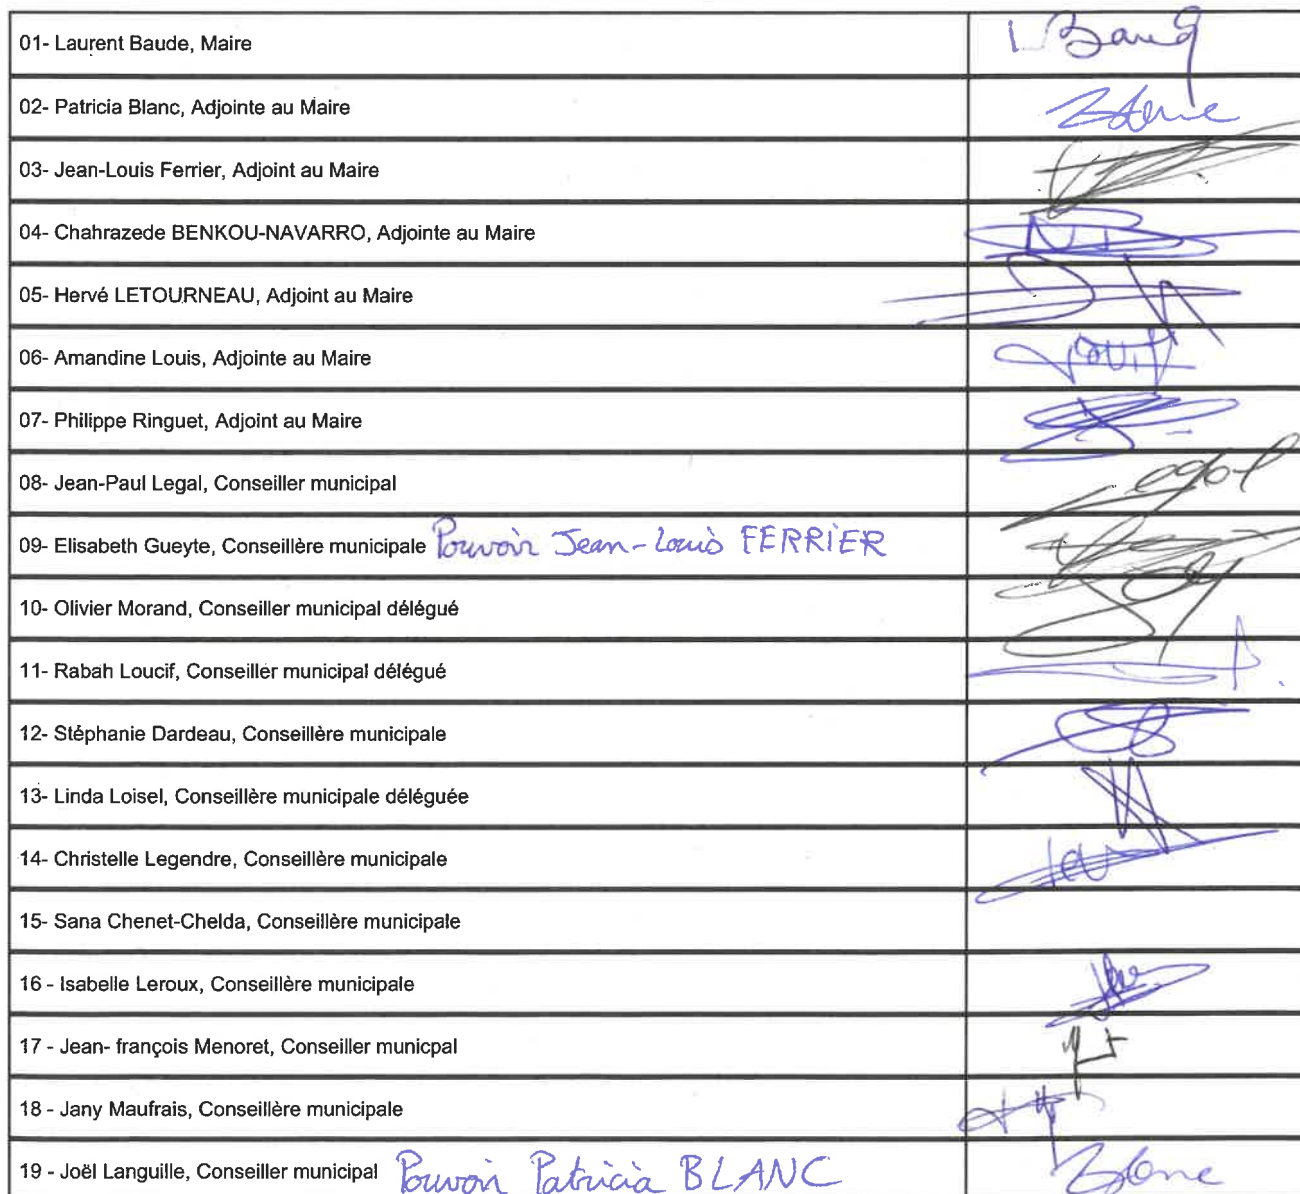 01- Laurent Baude, Maire
02- Patricia Blanc, Adjointe au Maire
Blanc
03- Jean-Louis Ferrier, Adjoint au Maire
04- Chahrazede BENKOU-NAVARRO, Adjointe au Maire
05- Hervé LETOURNEAU, Adjoint au Maire
06- Amandine Louis, Adjointe au Maire
07- Philippe Ringuet, Adjoint au Maire
08- Jean-Paul Legal, Conseiller municipal
09- Elisabeth Gueyte, Conseillère municipale Pouvoir Jean-Louis FERRIER
10- Olivier Morand, Conseiller municipal délégué
11- Rabah Loucif, Conseiller municipal délégué
12- Stéphanie Dardeau, Conseillère municipale
13- Linda Loisel, Conseillère municipale déléguée
14- Christelle Legendre, Conseillère municipale
15- Sana Chenet-Chelda, Conseillère municipale
16 - Isabelle Leroux, Conseillère municipale
17 - Jean- françois Menoret, Conseiller municpal
18 - Jany Maufrais, Conseillère municipale
19 - Joël Languille, Conseiller municipal Pouvoir Patricia BLANC Blanc